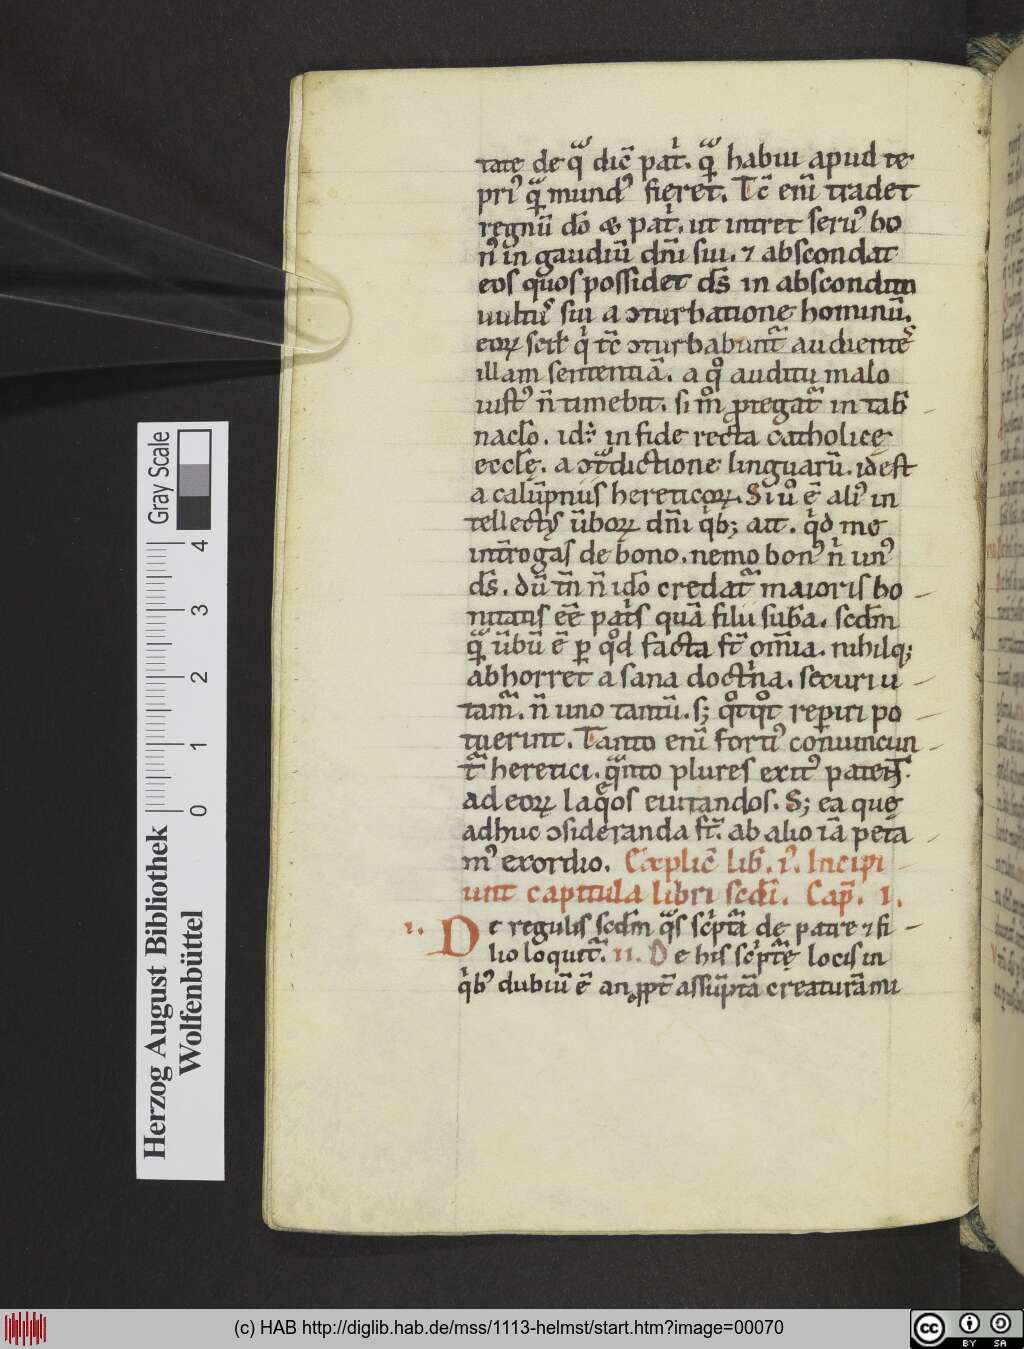 tate de q̃ dic̃ pat̃. q̃ habui apud te
pri᾽ q̃m mund᾽ fieret. Tc̃ eni̅ tradet
regnũ do̅ & pat̃. ut intret seru᾽ bo
n᾽ in gaudiũ dñi sui. ⁊ abscondat
eos quos possidet ds̅ in abscondito
uultus sui a ɔturbatione hominũ.
eoꝝ scil̃ q̃ tc̃ ɔturbabunt̃ audientes
illam sententiã. a qͦ auditu malo
iust᾽ ñ timebit. si m̊ ꝓtegat̃ in tab̃
naclo. id÷ in fide recta catholicę
ecclę. a ɔt̃dictione linguarũ. id est
a calũpniis hereticoꝝ. Si ů ẽ ali᾽ in
tellect᾽ ũboꝝ dñi qͥb; ait. qͥd me
int̃rogas de bono. nemo bon᾽ nͥ un᾽
ds̅. dũ tñ ñ iđo credat̃ maioris bo
nitatis eẽ pat̃s quã filii sub̃a. scdm̃
q̃m ũbũ ẽ ꝑ qͦd facta st̃ om̃ia. nihilq;
abhorret a sana doctͥna. securi u
tam̃. ñ uno tantũ. s; qͦtqͦt reperiri po
tuerint. Tanto eni̅ forti᾽ conuincun
t̃ heretici. q̃nto plures exit᾽ patent
ad eoꝝ laqͤos euitandos. S; ea quę
adhuc ɔsideranda st̃. ab alio iã peta
m᾽ exordio. Explic̃ lib̃. i᾽. Incipi
unt capitula libri scdi̅. Cap̃. I.
i. De regulis scdm̃ q̃s sc̃ptã de patre ⁊ fi
lio loquit̃. ii. De his sc̃ptę locis in
qͥb᾽ dubiũ ẽ an ꝓpt̃ assũptã creaturã mi
Herzog August Bibliothek
Wolfenbüttel
0 1 2 3 4
Gray Scale
(c) HAB http://diglib.hab.de/mss/1113-helmst/start.htm?image=00070
cc BY SA